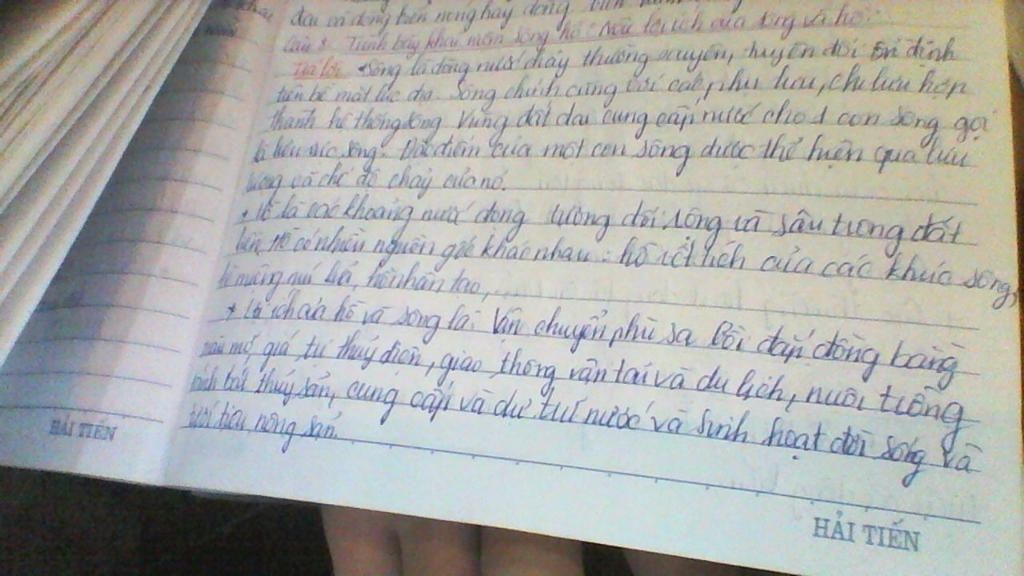 đai và dòng biển nóng hay dòng biển
Câu 8: Trình bày khái niệm sông, hồ? Nêu lợi ích của sông và hồ?
Trả lời *Sông là dòng nước chảy thường xuyên, tuyên đối ổn định
trên bề mặt lục địa. Sông chính cùng với các phụ lưu, chi lưu hợp
thành hệ thống sông. Vùng đất đai cung cấp nước cho 1 con sông gọi
là lưu vực sông. Đặc điểm của một con sông được thể hiện qua lưu
lượng và chế độ chảy của nó.
* Hồ là các khoảng nước đọng tương đối rộng và sâu trong đất
liền, Hồ có nhiều nguồn gốc khác nhau: hồ vết tích của các khúc sông,
hồ miệng núi lửa, hồ nhân tạo,
* Lợi ích của hồ và sông là: Vận chuyển phù sa bồi đắp đồng bằng
màu mỡ, giá trị thủy điện, giao thông vận tải và du lịch, nuôi trồng
đánh bắt thủy sản, cung cấp và dự trữ nước và sinh hoạt đời sống và
tưới tiêu nông sản.
HẢI TIẾN
HẢI TIẾN